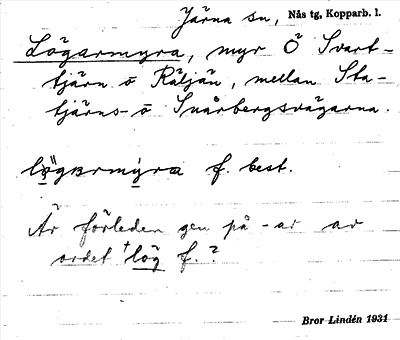 Järna sn, Nås tg, Kopparb. l.
Lögarmyra, myr Ö Svart-
tjärn o Rältjän, mellan Sta-
tjärns- o Snårbergsvägarna.
lögarmyra f. best.
Är förleden gen på -ar av
ordet †lög f.?
Bror Lindén 1931